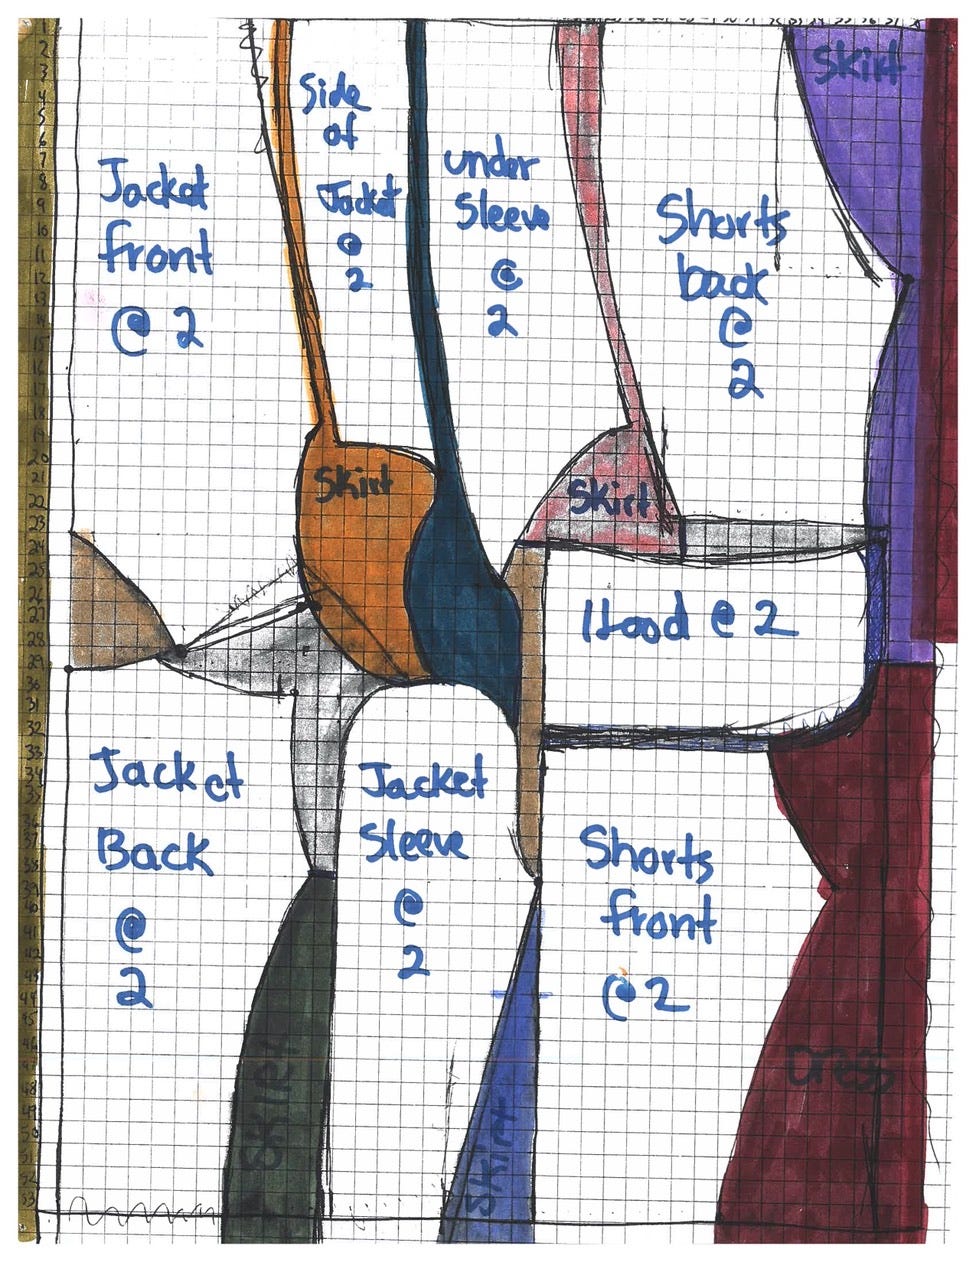 Skirt
Side
of
Jacket
@
2
Jacket
front
@ 2
under
Sleeve
@
2
Shorts
back
@
2
Skirt
Skirt
Hood @ 2
Jacket
Back
@
2
Jacket
Sleeve
@
2
Shorts
front
@ 2
SKIRT
Skirt
Dress